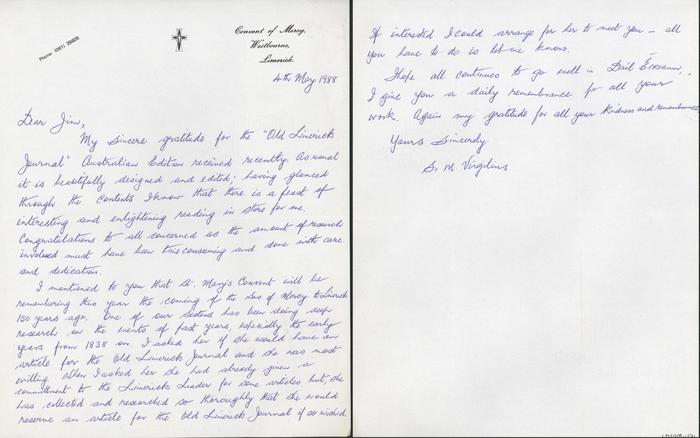 Convent of Mercy,
Westbourne,
Limerick.
4th May 1988
Dear Jim,
My sincere gratitude for the "Old Limerick
Journal" Australian Edition received recently. As usual
it is beautifully designed and edited; having glanced
through the contents I know that there is a feast of
interesting and enlightening reading in store for me.
Congratulations to all concerned as the amount of research
involved must have been time consuming and done with care
and dedication.
I mentioned to you that St. Mary's Convent will be
remembering this year the coming of the Srs of Mercy to Limerick
150 years ago. One of our Sisters has been doing deep
research on the events of past years, especially the early
years from 1838 on. I asked her if she would have an
article for the Old Limerick Journal and she was most
willing. When I asked her she had already given a
commitment to the Limerick Leader for some articles, but, she
has collected and researched so thoroughly that she would
reserve an article for the Old Limerick Journal if so wished.
If interested I could arrange for her to meet you – all
you have to do is let me know.
I hope all continues to go well in Dáil Éireann,
I give you a daily remembrance for all your
work. Again my gratitude for all your kindness and remembrance
Yours Sincerely
S. M. Virgilius